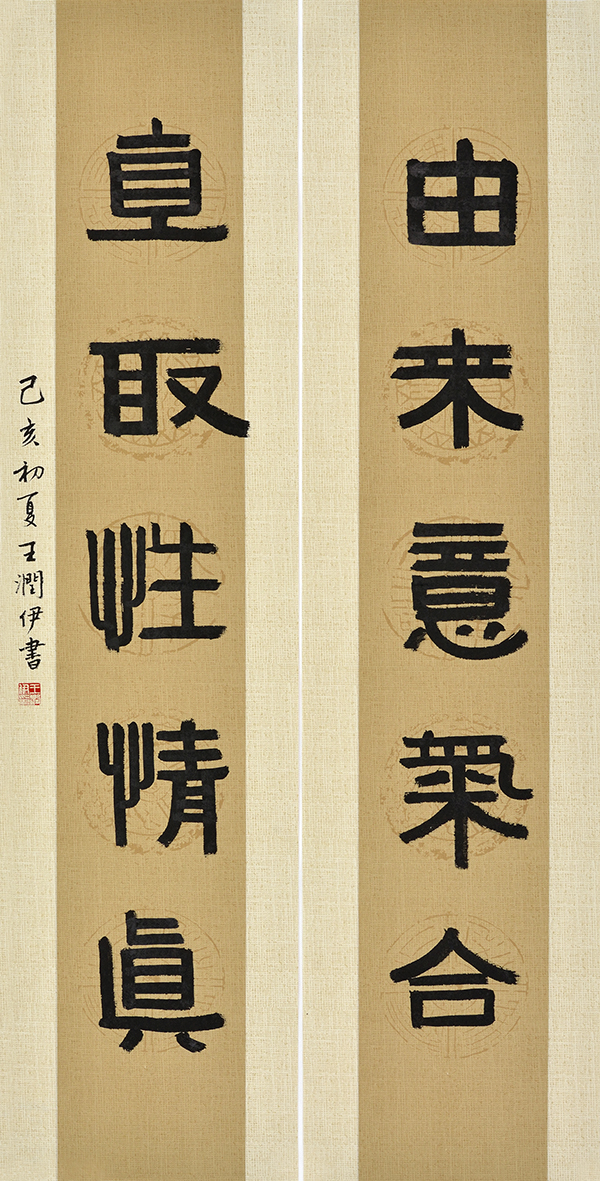 由来意氣合
直取性情真
己亥初夏王潤伊書